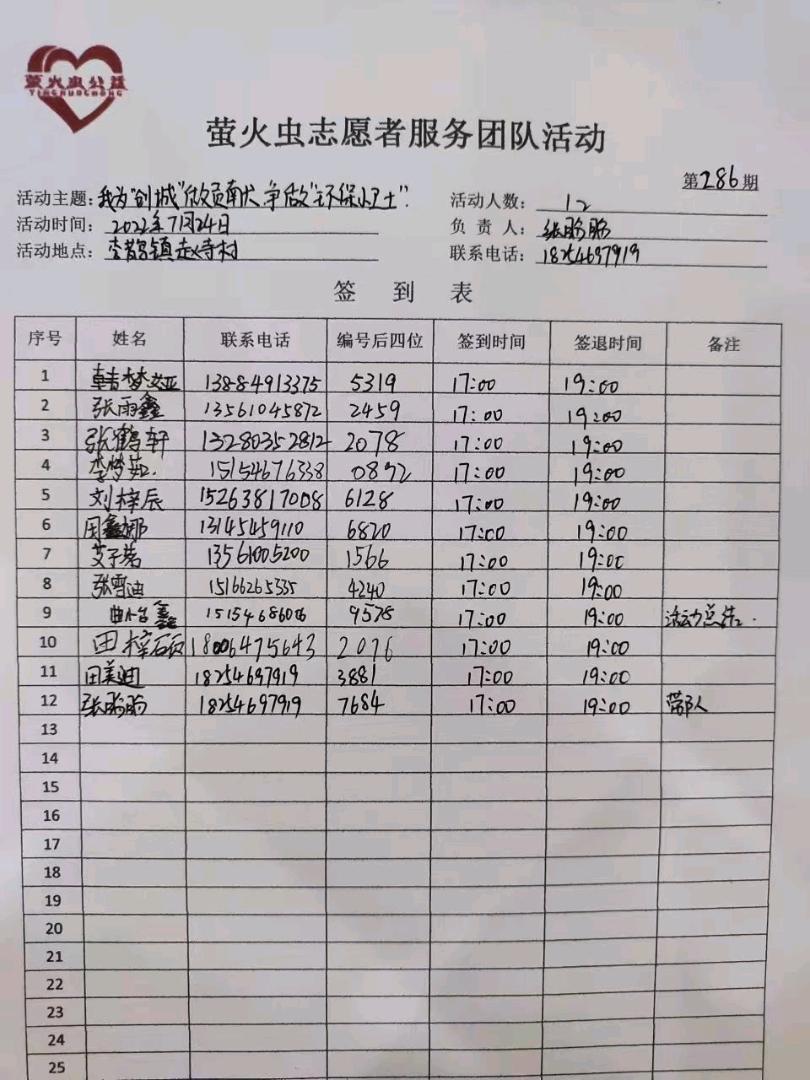 萤火虫公益
YINGHUOCHONG
萤火虫志愿者服务团队活动
第286期
活动主题：我为"创城"做贡献 争做"环保小卫士". 活动人数：12
活动时间：2022年7月24日 负责人：张盼盼
活动地点：李鹊镇赵寺村 联系电话：18254697919
签到表
序号 姓名 联系电话 编号后四位 签到时间 签退时间 备注
1 韩梦亚 13884913375 5319 17:00 19:00
2 张雨鑫 13561045872 2459 17:00 19:00
3 张鹤轩 13280352812 2078 17:00 19:00
4 李梦茹 15154676338 0892 17:00 19:00
5 刘梓辰 15263817008 6128 17:00 19:00
6 周鑫娜 13145459110 6820 17:00 19:00
7 艾子茗 13561005200 1566 17:00 19:00
8 张雪迪 15166265335 4240 17:00 19:00
9 鑫 15154686006 9578 17:00 19:00 活动总结.
10 田梓硕 18006475643 2076 17:00 19:00
11 田美迪 18254697919 3881 17:00 19:00
12 张盼盼 18254697919 7684 17:00 19:00 带队
13
14
15
16
17
18
19
20
21
22
23
24
25